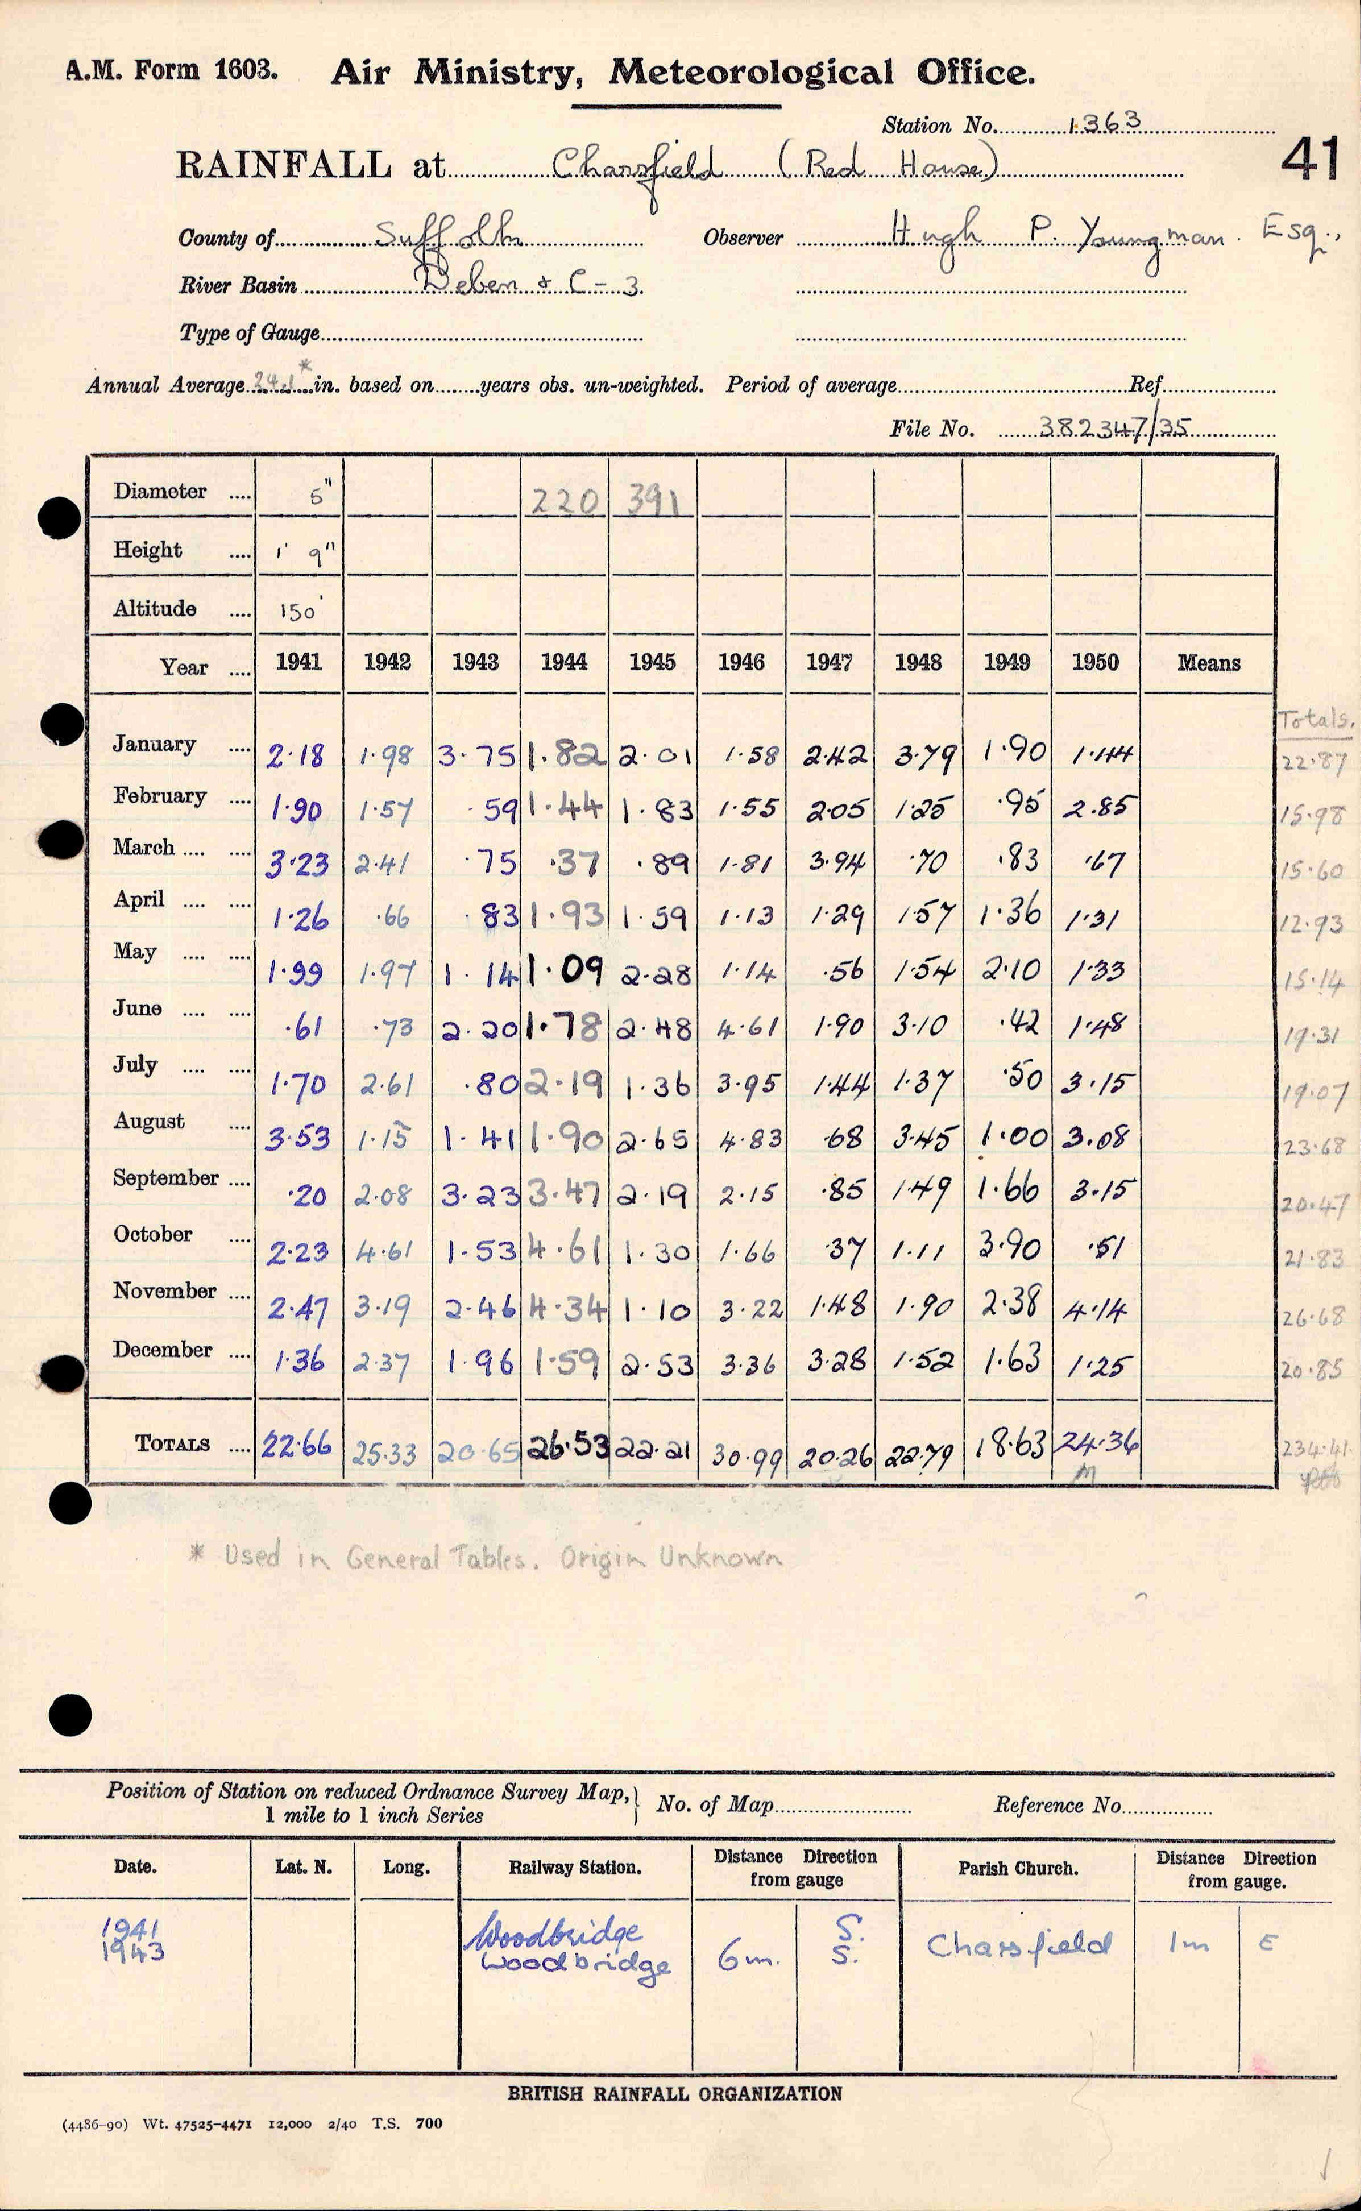 A.M. Form 1603. Air Ministry, Meteorological Office.
Station No. 1363
41
RAINFALL at Charsfield (Red House)
County of Suffolk Observer Hugh P. Youngman. Esq.,
River Basin Deben & C-3
Type of Gauge
Annual Average 24.1* in. based on years obs. un-weighted. Period of average Ref
File No. 382347/35
Diameter .... 5" 220 391
Height .... 1' 9"
Altitude .... 150'
Year .... 1941 1942 1943 1944 1945 1946 1947 1948 1949 1950 Means
Totals.
January .... 2.18 1.98 3.75 1.82 2.01 1.58 2.42 3.79 1.90 1.44 22.87
February .... 1.90 1.57 .59 1.44 1.83 1.55 2.05 1.25 .95 2.85 15.98
March .... .... 3.23 2.41 .75 .37 .89 1.81 3.94 .70 .83 .67 15.60
April .... .... 1.26 .66 .83 1.93 1.59 1.13 1.29 1.57 1.36 1.31 12.93
May .... .... 1.99 1.97 1.14 1.09 2.28 1.14 .56 1.54 2.10 1.33 15.14
June .... .... .61 .73 2.20 1.78 2.48 4.61 1.90 3.10 .42 1.48 19.31
July .... .... 1.70 2.61 .80 2.19 1.36 3.95 1.44 1.37 .50 3.15 19.07
August .... 3.53 1.15 1.41 1.90 2.65 4.83 .68 3.45 1.00 3.08 23.68
September .... .20 2.08 3.23 3.47 2.19 2.15 .85 1.49 1.66 3.15 20.47
October .... 2.23 4.61 1.53 4.61 1.30 1.66 .37 1.11 3.90 .51 21.83
November .... 2.47 3.19 2.46 4.34 1.10 3.22 1.48 1.90 2.38 4.14 26.68
December .... 1.36 2.37 1.96 1.59 2.53 3.36 3.28 1.52 1.63 1.25 20.85
TOTALS .... 22.66 25.33 20.65 26.53 22.21 30.99 20.26 22.79 18.63 24.36 234.41
M
* Used in General Tables. Origin Unknown
Position of Station on reduced Ordnance Survey Map, 1 mile to 1 inch Series } No. of Map Reference No.
Date. Lat. N. Long. Railway Station. Distance Direction from gauge Parish Church. Distance Direction from gauge.
1941 Woodbridge S.
1943 Woodbridge 6m. S. Charsfield 1m E
BRITISH RAINFALL ORGANIZATION
(4486-90) Wt. 47525-4471 12,000 2/40 T.S. 700